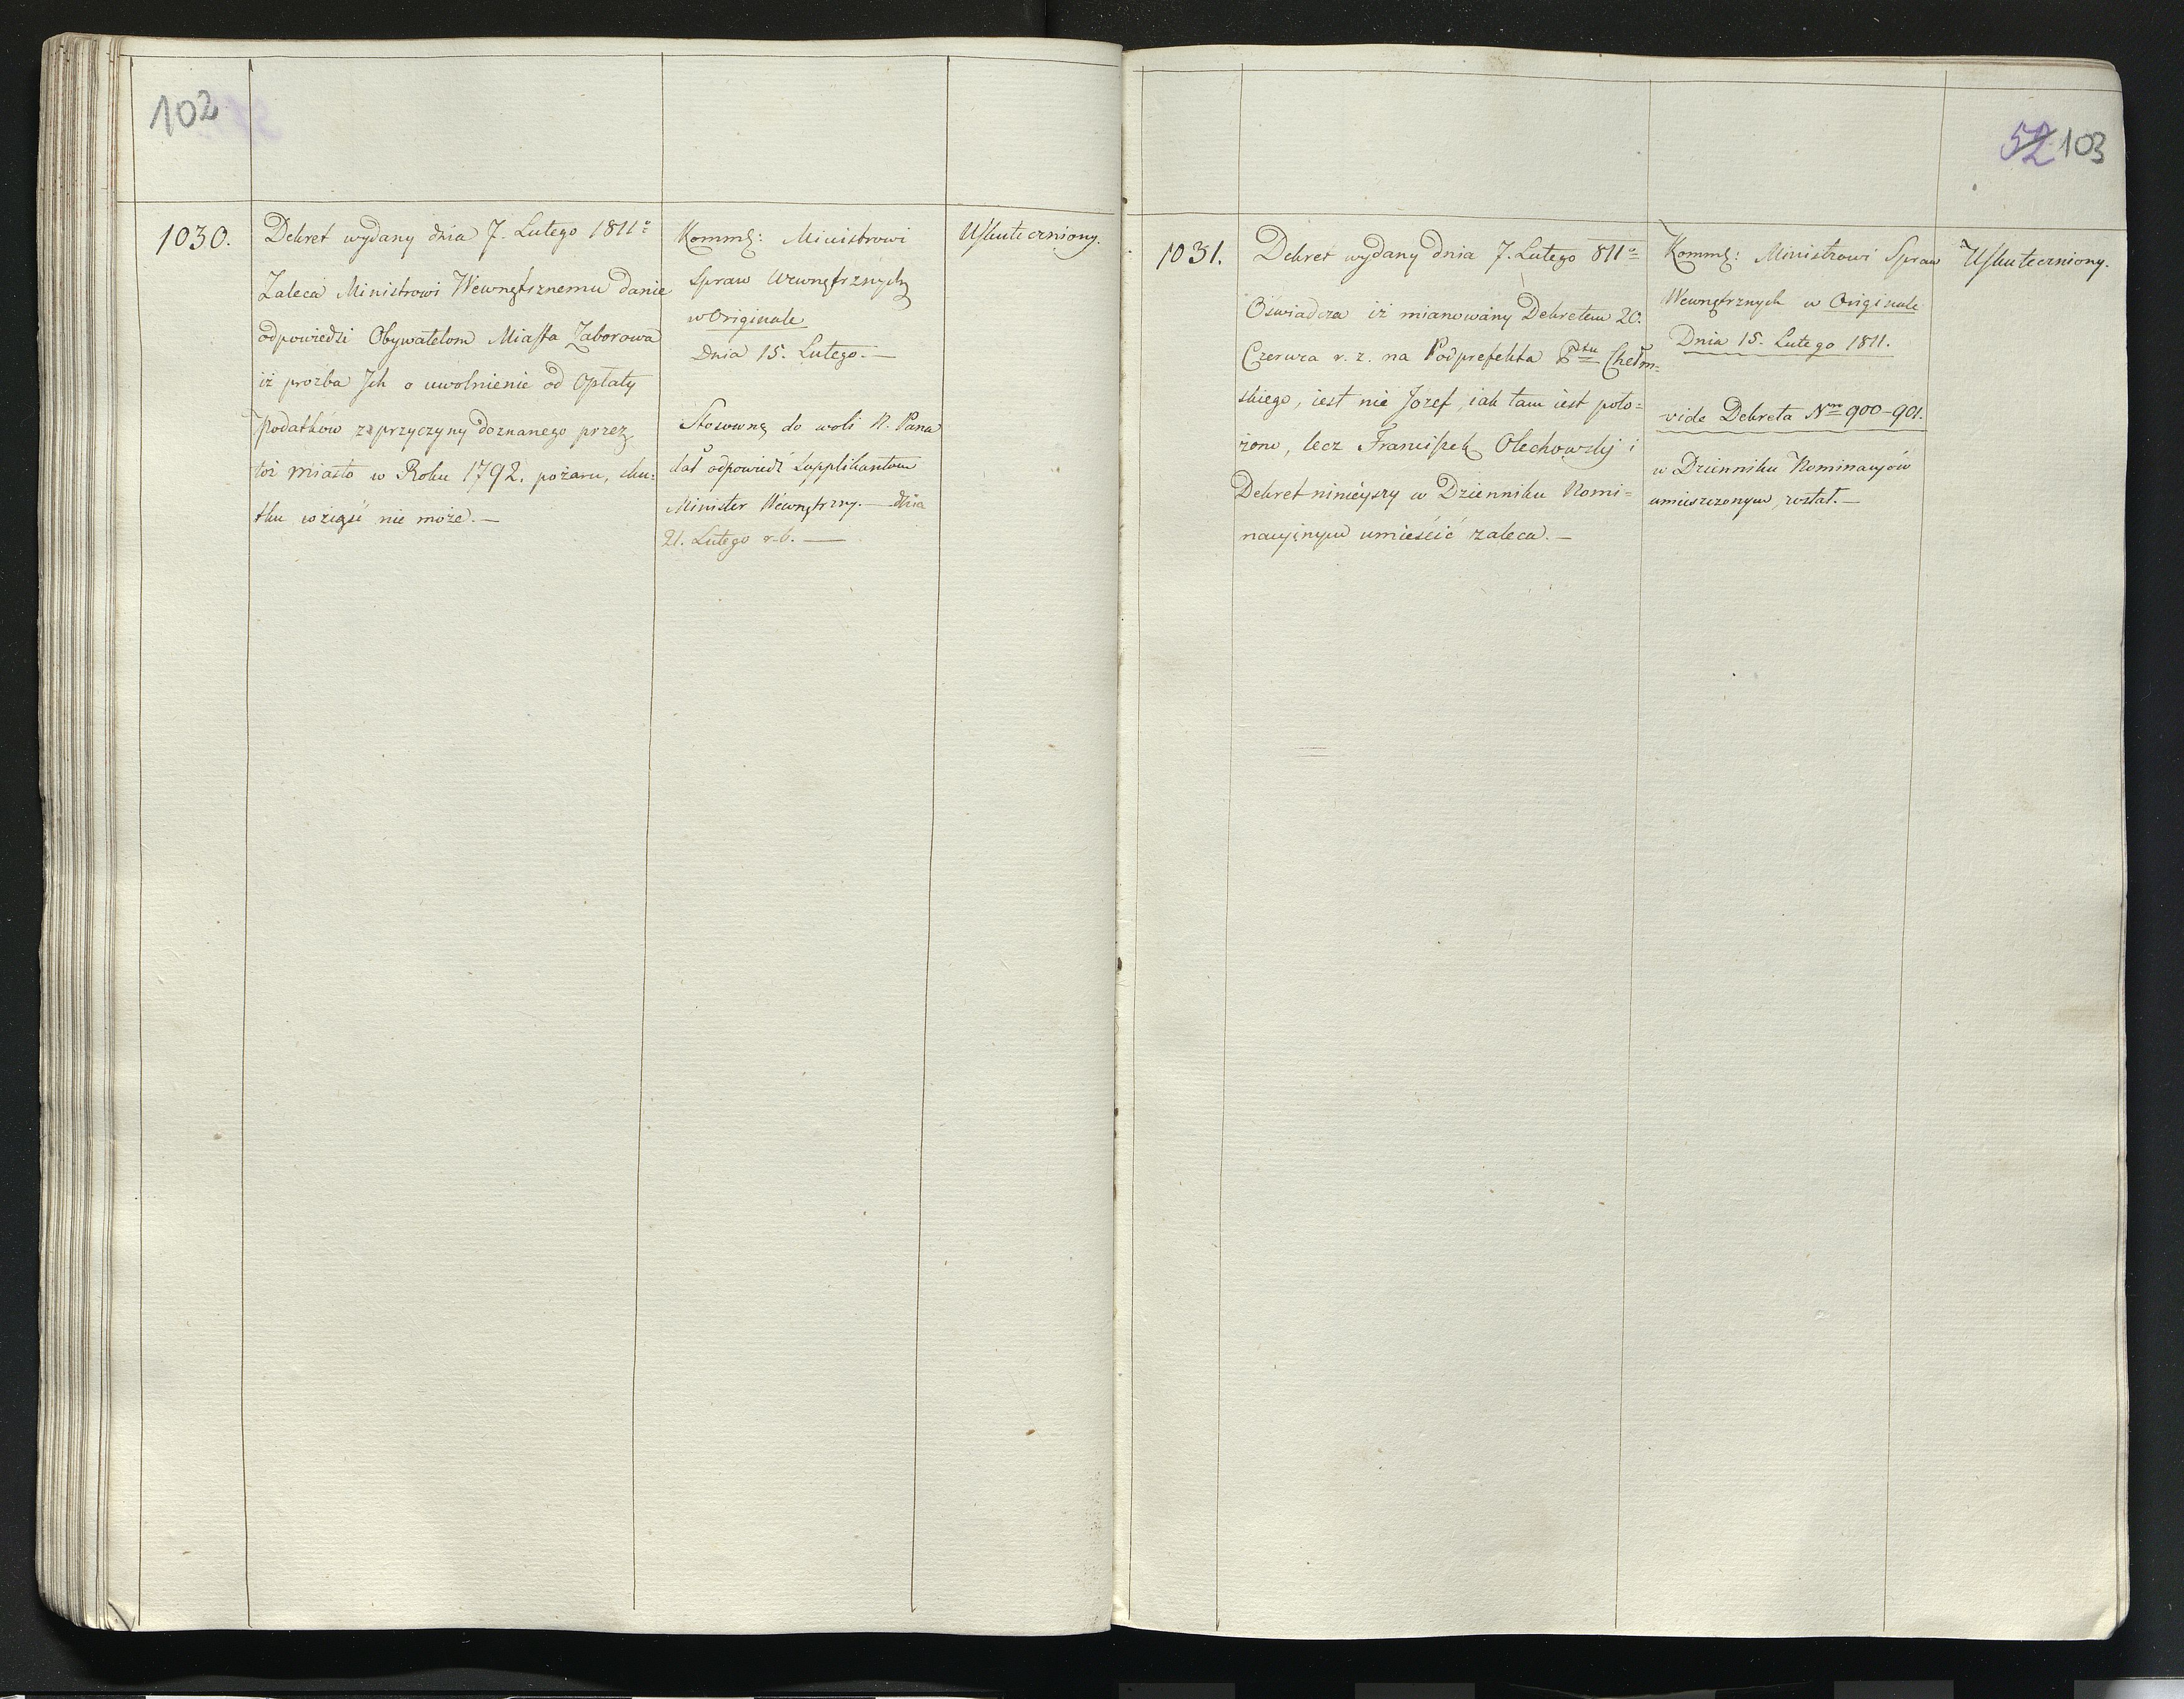 102
1030.
Dekret wydany dnia 7. Lutego 1811o
Zaleca Ministrowi Wewnętrznemu danie
odpowiedzi Obywatelom Miasta Zaborowa
iż prozba Jch o uwolnienie od Opłaty
Podatków z przyczyny doznanego przez
toż Miasto w Roku 1792. pożaru, sku:
tku wziąść nie może.—
Kommk: Ministrowi
Spraw Wewnętrznych
w Originale
Dnia 15. Lutego.—
Stosowną do woli N. Pana
dał odpowiedź Supplikantom
Minister Wewnętrzny.— dnia
21. Lutego r. b.—
Uskuteczniony.
52 103
1031.
Dekret wydany dnia 7. Lutego 811o
Oświadcza iż mianowany Dekretem 20.
Czerwca r. z. na Podprefekta Pttu Chełm=
skiego, iest nie Józef, iak tam iest poło=
żono, lecz Franciszek Olechowski i
Dekret ninieyszy w Dzienniku Nomi=
nacyinym umieścić zaleca.—
Kommk: Ministrowi Spraw
Wewnętrznych w Originale
Dnia 15. Lutego 1811.
vide Dekreta Nro 900-901.
w Dzienniku Nominacyów
umieszczonym, został.—
Uskuteczniony.